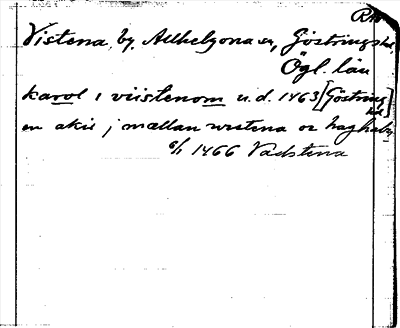 RA
Vistena, by, Allhelgona sn, Göstrings hd,
Ögl. län
karol i viistenom u.d. 1463 [Göstring
hd]
en akir j mællan westena oc haghaby
6/1 1466 Vadstena